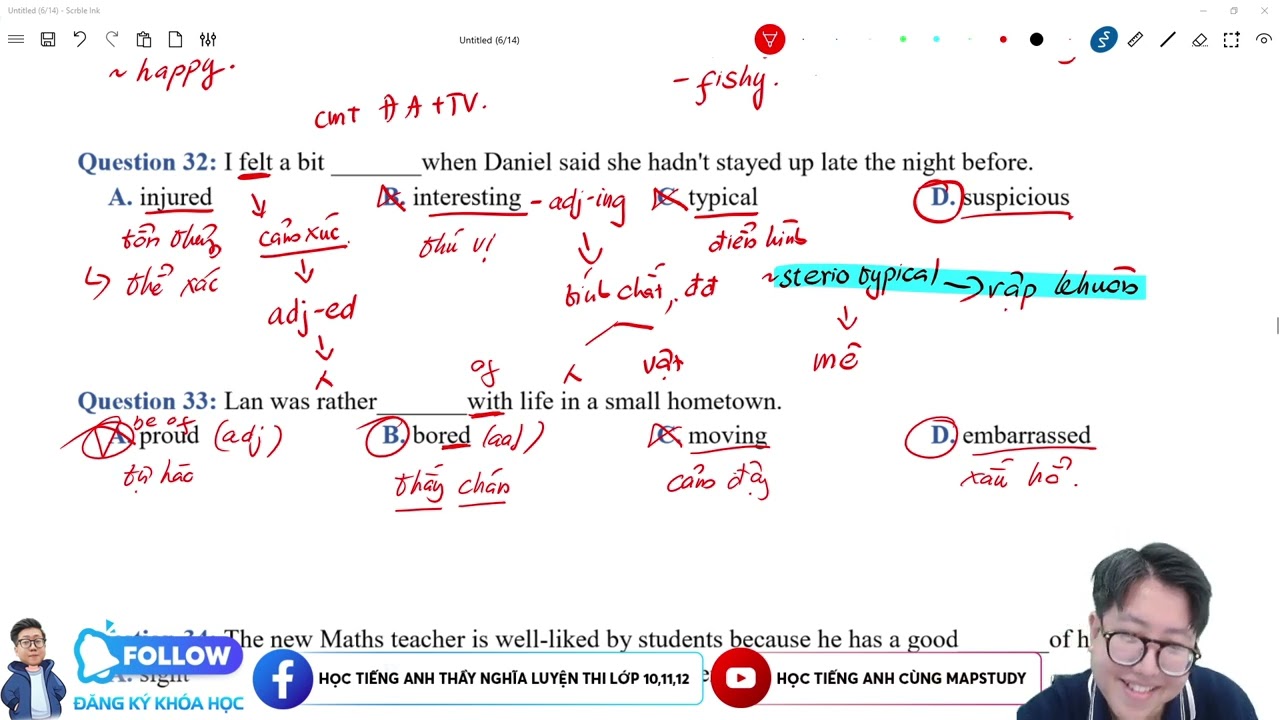 Untitled (6/14) - Scrble Ink
Untitled (6/14)
~ happy.
- fishy.
cmt ĐA + TV.
Question 32: I felt a bit _______ when Daniel said she hadn't stayed up late the night before.
A. injured B. interesting - adj-ing C. typical D. suspicious
tổn thương cảm xúc thú vị điển hình
↳ thể xác tính chất, đđ ~ sterio typical → rập khuôn
adj-ed
vật mê
of
Question 33: Lan was rather_______with life in a small hometown.
be of
A. proud (adj) B. bored (adj) C. moving D. embarrassed
tự hào thấy chán cảm động xấu hổ.
The new Maths teacher is well-liked by students because he has a good _______of h
A. sight
FOLLOW
ĐĂNG KÝ KHÓA HỌC
HỌC TIẾNG ANH THẦY NGHĨA LUYỆN THI LỚP 10,11,12
HỌC TIẾNG ANH CÙNG MAPSTUDY